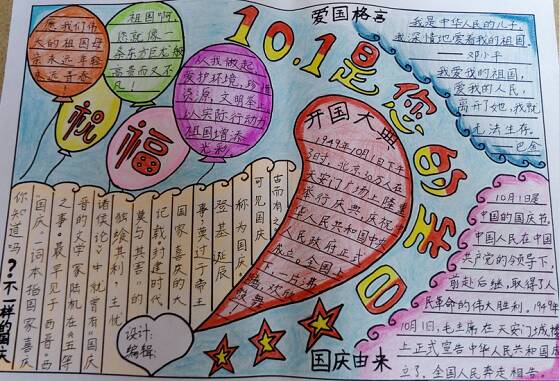 爱国格言
我是中华人民的儿子,
我深情地爱着我的祖国
——邓小平
我爱我的祖国,
爱我的人民,
离开了她,我就
无法生存。
——巴金
愿我们伟
大的祖国母
亲永远年轻
永远青春!
祖国啊
你就像一
条东方巨龙
凡!
从我做起,
爱护环境,珍惜
资源,文明
以实际行动为
祖国增添
光彩
祝福
10.1是您的生日
开国大典
1949年10月1日下午
3时,北京30万人在
天安门广场上隆重
举行庆典,庆祝中
华人民共和国中央
人民政府正式
成立。全国上
下一片沸
腾,欢欣
鼓舞!
10月1日是
中国的国庆节
中国人民在中国
共产党的领导下,
前赴后继,取得了人
民革命的伟大胜利。1949年
10月1日,毛主席在天安门城楼
上正式宣告中华人民共和国成
立了,全国人民奔走相告。
国庆由来
你知道吗?不一样的国庆
"国庆"一词本指国家喜庆
之事,最早见于西晋。西
晋的文学家陆机在《五等
诸侯论》中就曾有"国庆
独飨其利,主忧
莫与其害"的
记载。封建时代
国家喜庆的大
事,莫过于帝王
登基、诞辰
称为国庆。
可见国庆
古而有之
设计:
编辑: